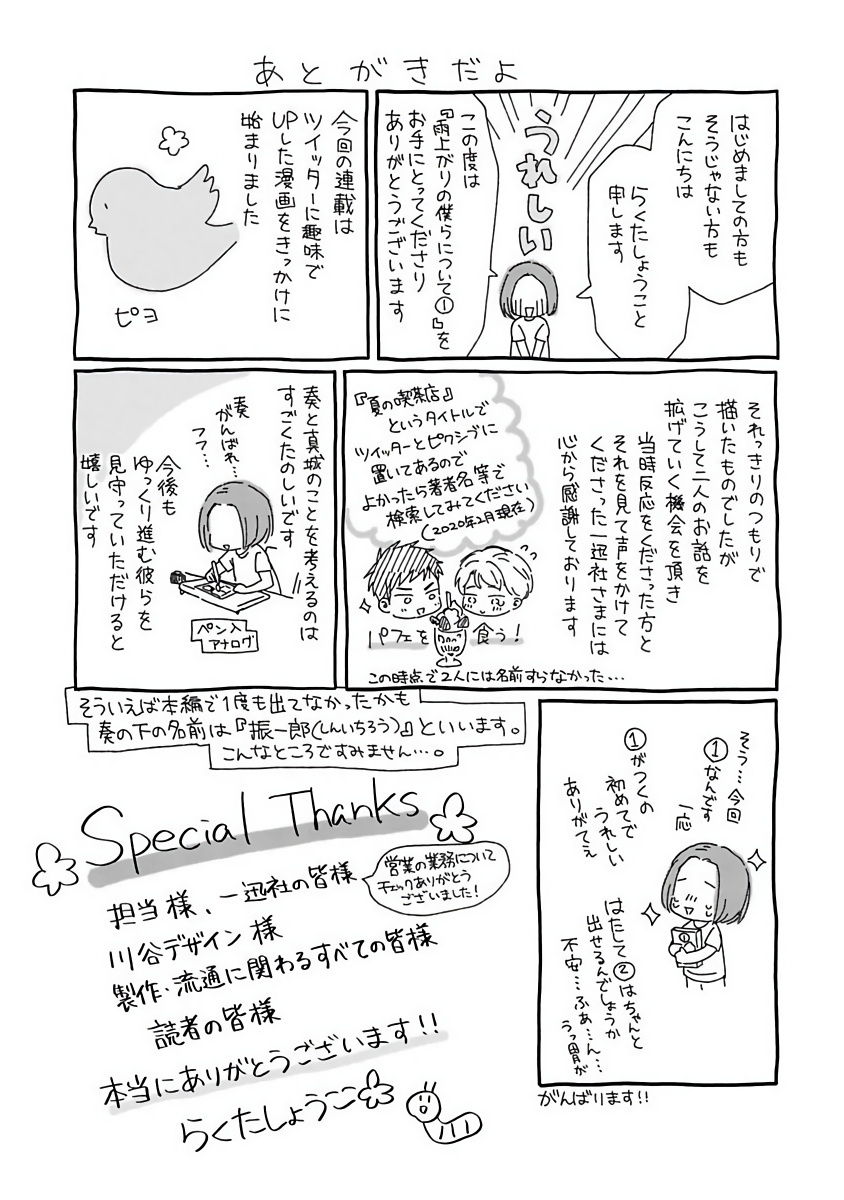 あとがきだよ
はじめましての方も
そうじゃない方も
こんにちは
らくたしょうこと
申します
うれしい
この度は
『雨上がりの僕らについて①』を
お手にとってくださり
ありがとうございます
今回の連載は
ツイッターに趣味で
UPした漫画をきっかけに
始まりました
ピヨ
それっきりのつもりで
描いたものでしたが
こうして二人のお話を
拡げていく機会を頂き
当時反応をくださった方と
それを見て声をかけて
くださった一迅社さまには
心から感謝しております
『夏の喫茶店』
というタイトルで
ツイッターとピクシブに
置いてあるので
よかったら著者名等で
検索してみてください
(2020年2月現在)
パフェを食う!
この時点で2人には名前すらなかった…
奏と真城のことを考えるのは
すごくたのしいです
奏
がんばれ…
フフ…
ペン入
アナログ
今後も
ゆっくり進む彼らを
見守っていただけると
嬉しいです
そういえば本編で1度も出てなかったかも
奏の下の名前は『振一郎(しんいちろう)』といいます。
こんなところですみません…。
そう…今回
①なんです
一応
①がつくの
初めてで
うれしい
ありがてぇ
はたして②はちゃんと
出せるんでしょうか
不安…ふぁ…ん…
うっ胃が
がんばります!!
Special Thanks
担当様、一迅社の皆様
営業の業務について
チェックありがとう
ございました!
川谷デザイン様
製作・流通に関わるすべての皆様
読者の皆様
本当にありがとうございます!!
らくたしょうこ